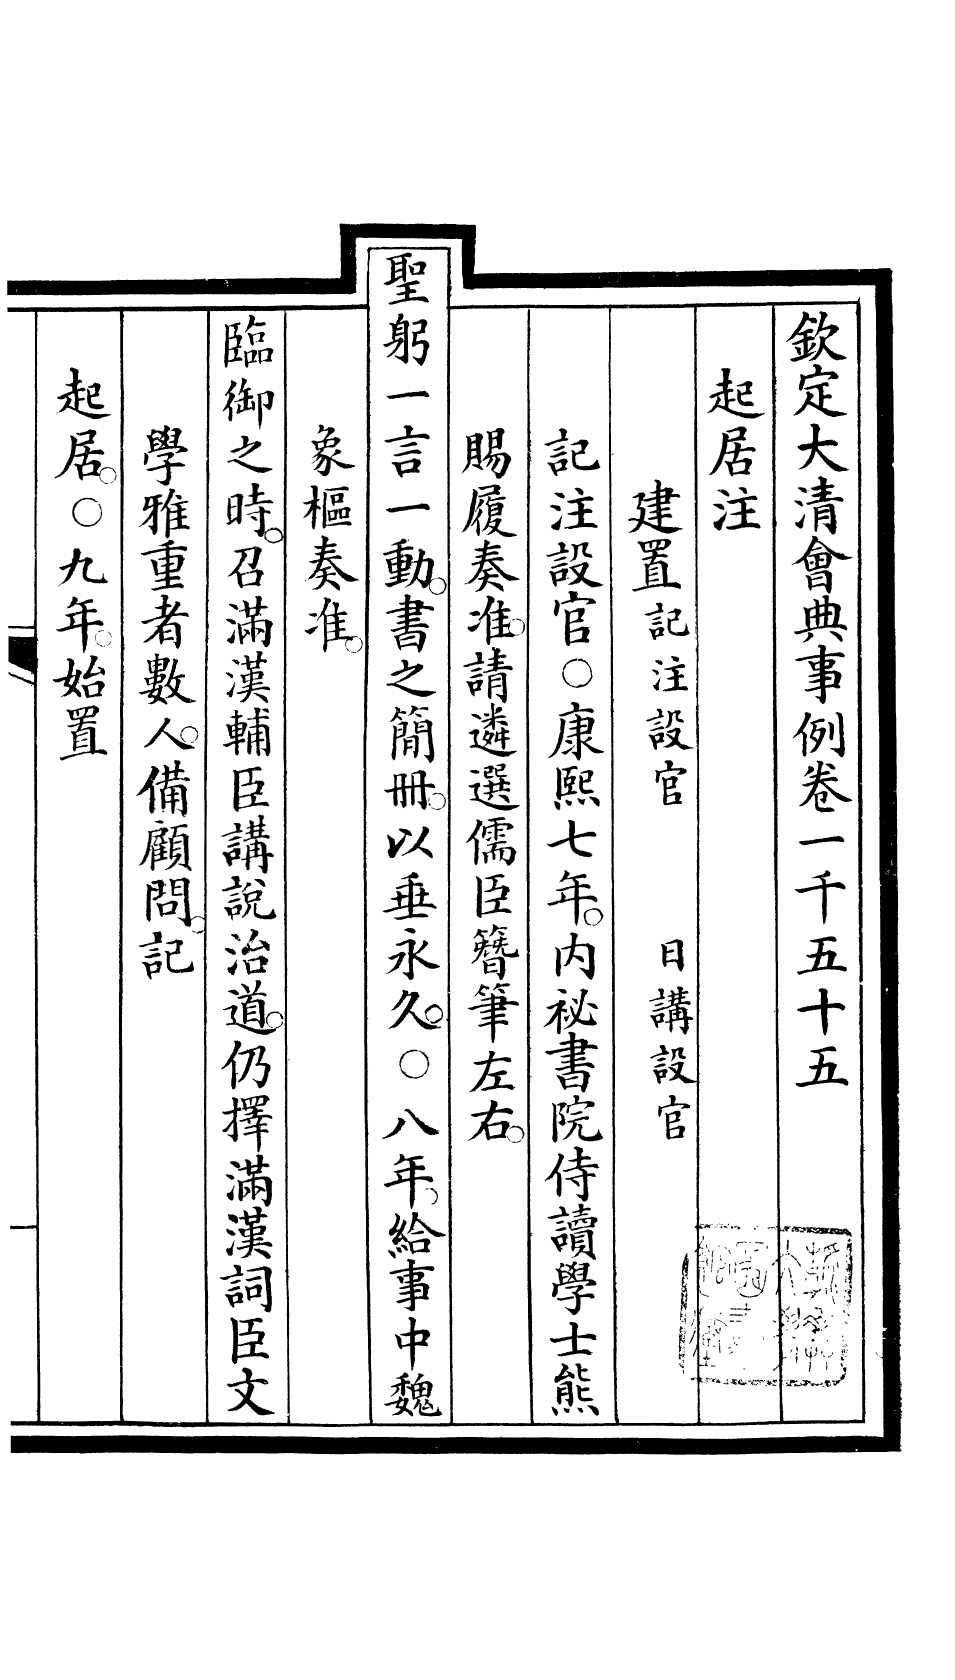 欽定大清會典事例卷一千五十五
起居注
建置記注設官 日講設官
記注設官〇康熙七年。內祕書院侍讀學士熊
賜履奏准。請遴選儒臣簪筆左右。
聖躬一言一動。書之簡冊。以垂永久。〇八年。給事中魏
象樞奏准。
臨御之時。召滿漢輔臣講說治道。仍擇滿漢詞臣文
學雅重者數人。備顧問。記
起居。〇九年。始置